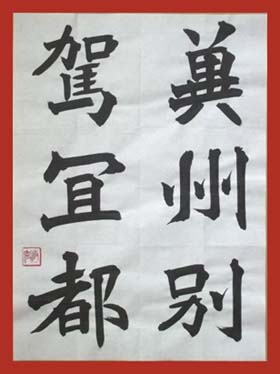 冀州别
駕冝都